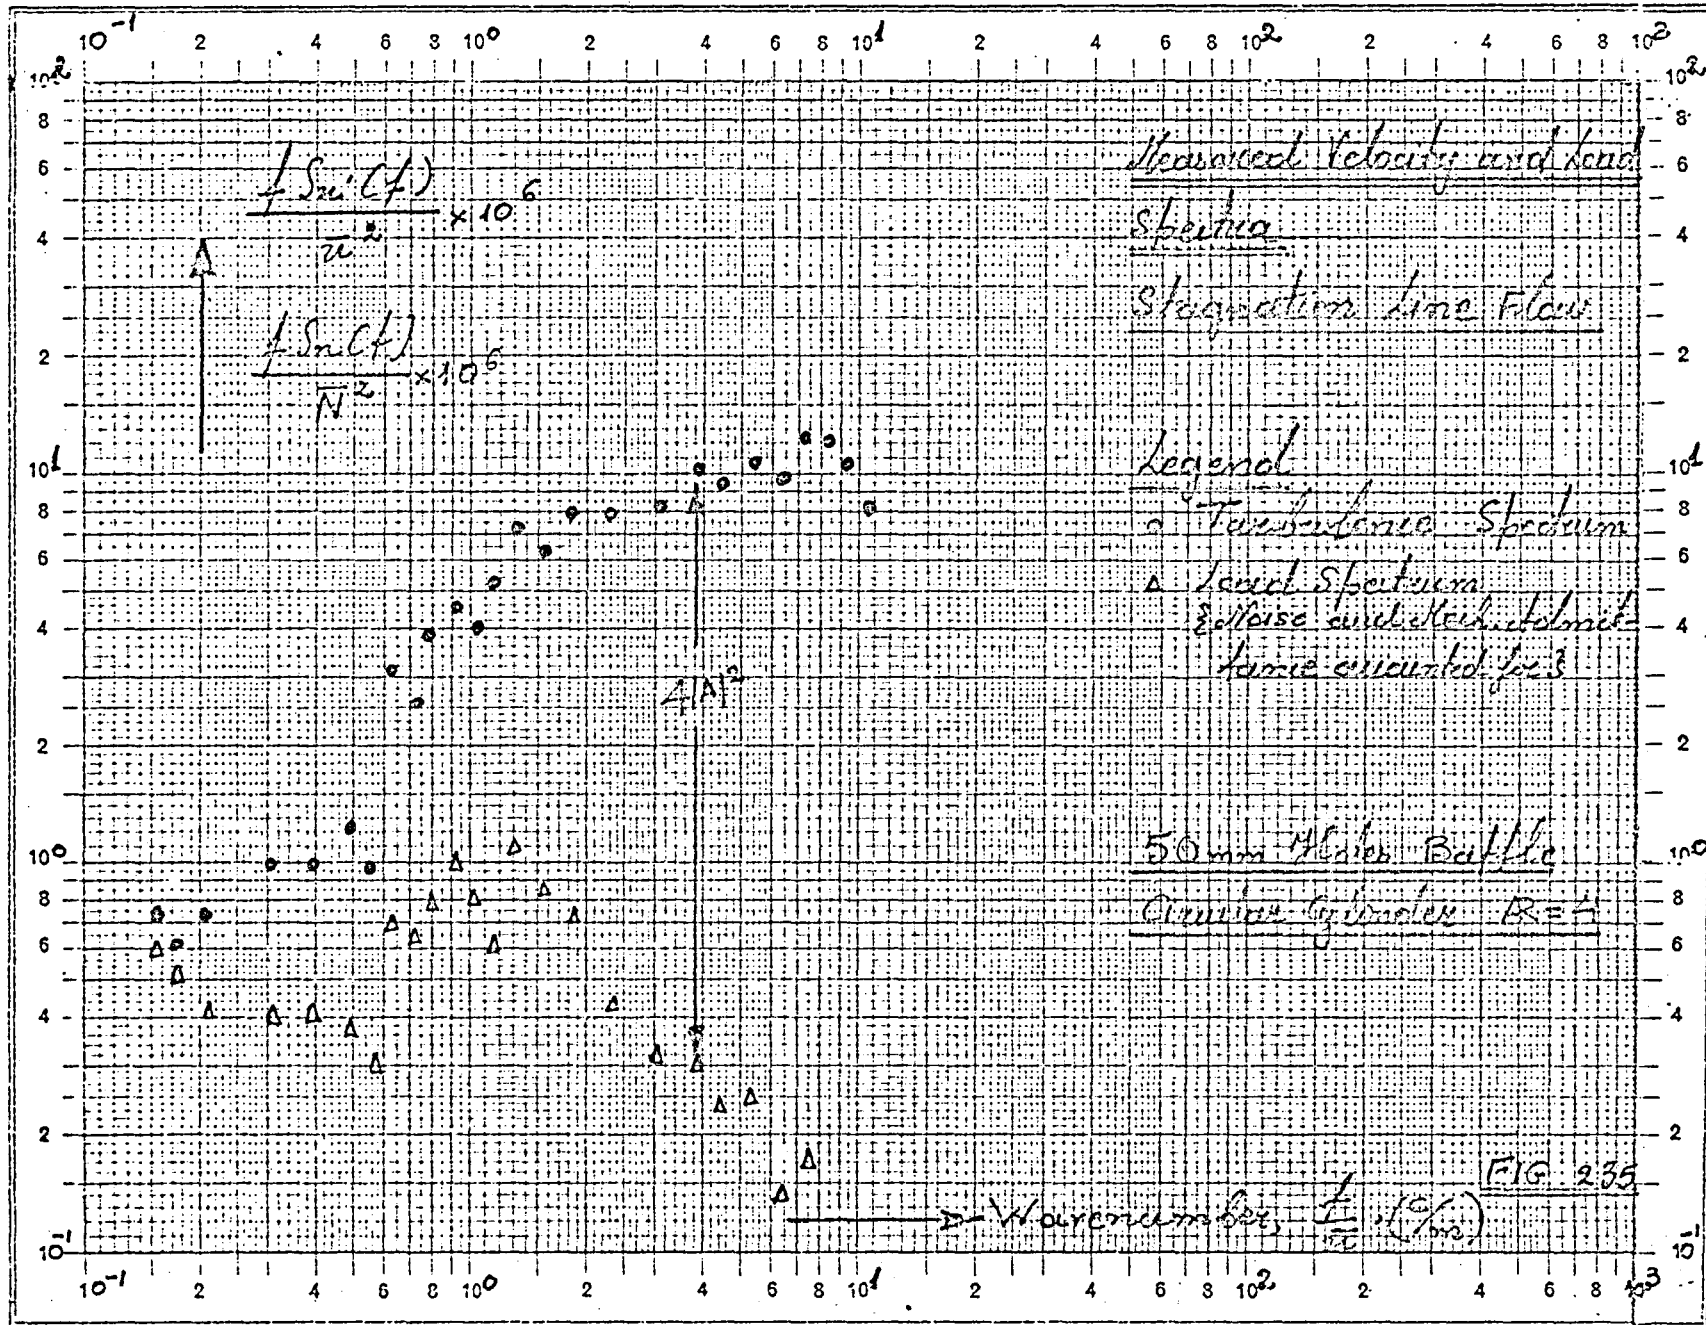 10-1 2 4 6 8 10⁰ 2 4 6 8 10¹ 2 4 6 8 10² 2 4 6 8 10³
10² 8 6 4 2 10¹ 8 6 4 2 10⁰ 8 6 4 2 10-1
f Sni(f) / u̅² ×10⁶
f Sn(f) / N̅² ×10⁶
4|A|²
Measured Velocity and Load
Spectra
Stagnation Line Flow
Legend
o Turbulence Spectrum
Δ Load Spectrum
{Noise and Mech. Admit-
tance accounted for}
50mm Holes Baffle
Circular Cylinder AR=4
FIG 235
Wavenumber, f/u̅ (c/m)
10² 8 6 4 2 10¹ 8 6 4 2 10⁰ 8 6 4 2 10-1
10-1 2 4 6 8 10⁰ 2 4 6 8 10¹ 2 4 6 8 10² 2 4 6 8 10³